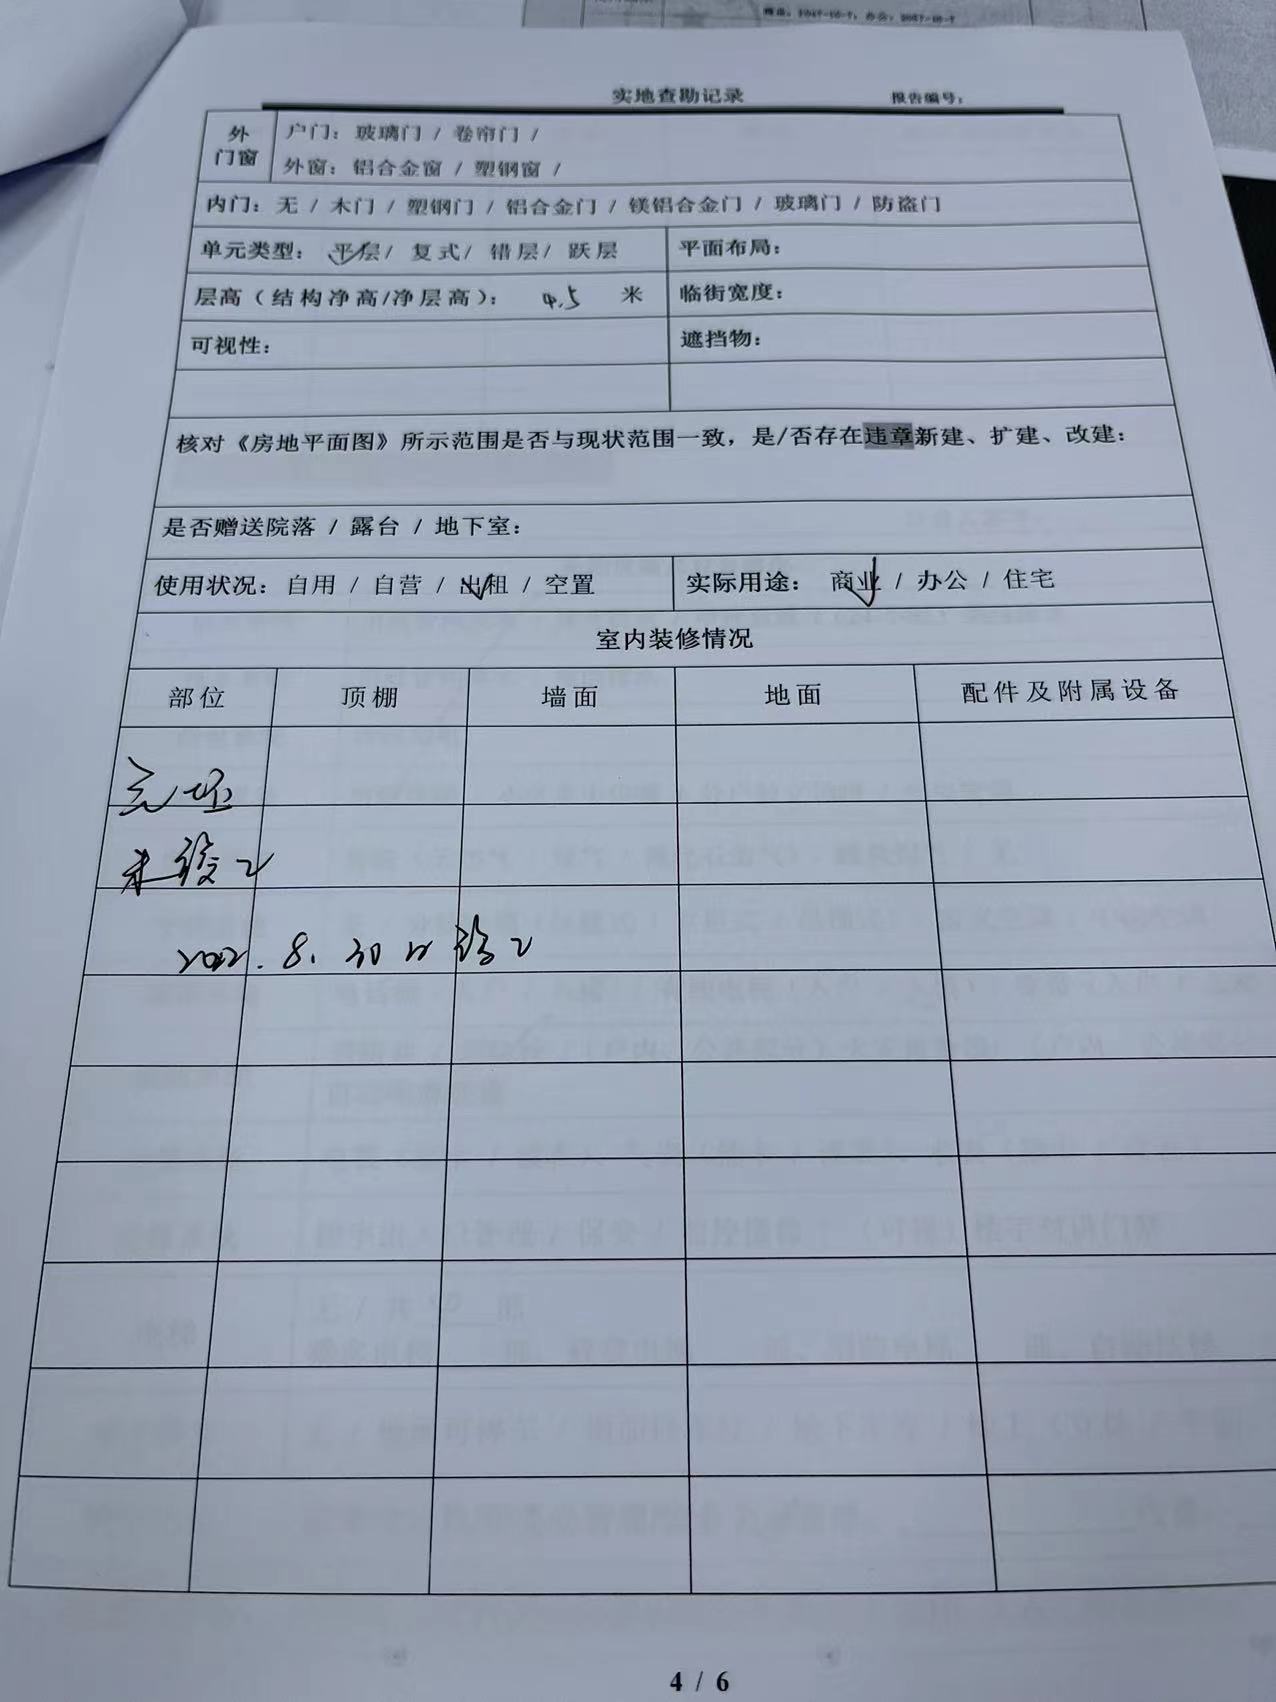 实地查勘记录 报告编号:
外门窗
户门: 玻璃门 / 卷帘门 /
外窗: 铝合金窗 / 塑钢窗 /
内门: 无 / 木门 / 塑钢门 / 铝合金门 / 镁铝合金门 / 玻璃门 / 防盗门
单元类型: 平层/ 复式/ 错层/ 跃层 平面布局:
层高(结构净高/净层高): 4.5 米 临街宽度:
可视性: 遮挡物:
核对《房地平面图》所示范围是否与现状范围一致,是/否存在违章新建、扩建、改建:
是否赠送院落 / 露台 / 地下室:
使用状况: 自用 / 自营 / 出租 / 空置 实际用途: 商业 / 办公 / 住宅
室内装修情况
部位 顶棚 墙面 地面 配件及附属设备
毛坯
未竣工
8.30 竣工
4 / 6